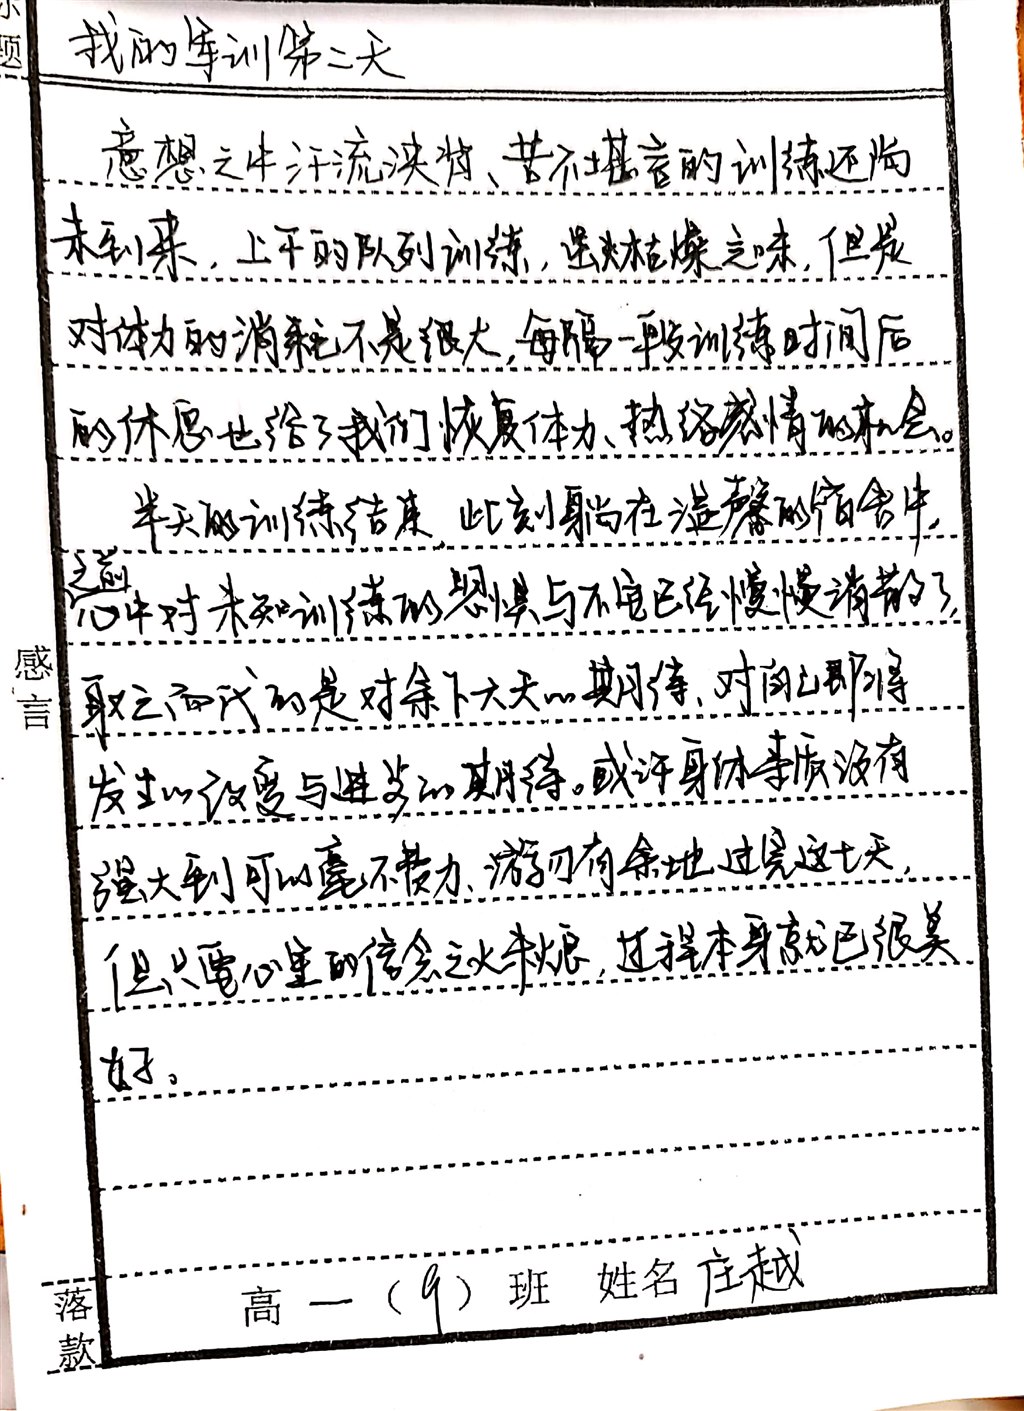 标题
我的军训第二天
意想之中汗流浃背、苦不堪言的训练还尚
未到来，上午的队列训练，虽然枯燥乏味，但是
对体力的消耗不是很大，每隔一段训练时间后
的休息也给了我们恢复体力、热络感情的机会。
半天的训练结束，此刻躺在温馨的宿舍中，
之前
心中对未知训练的恐惧与不安已经慢慢消散了，
取之而代的是对余下六天的期待、对自己即将
发生的改变与进步的期待。或许身体素质没有
强大到可以毫不费力、游刃有余地过完这七天，
但只要心里的信念之火未熄，过程本身就已很美
好。
感言
落款
高一（9）班 姓名 庄越